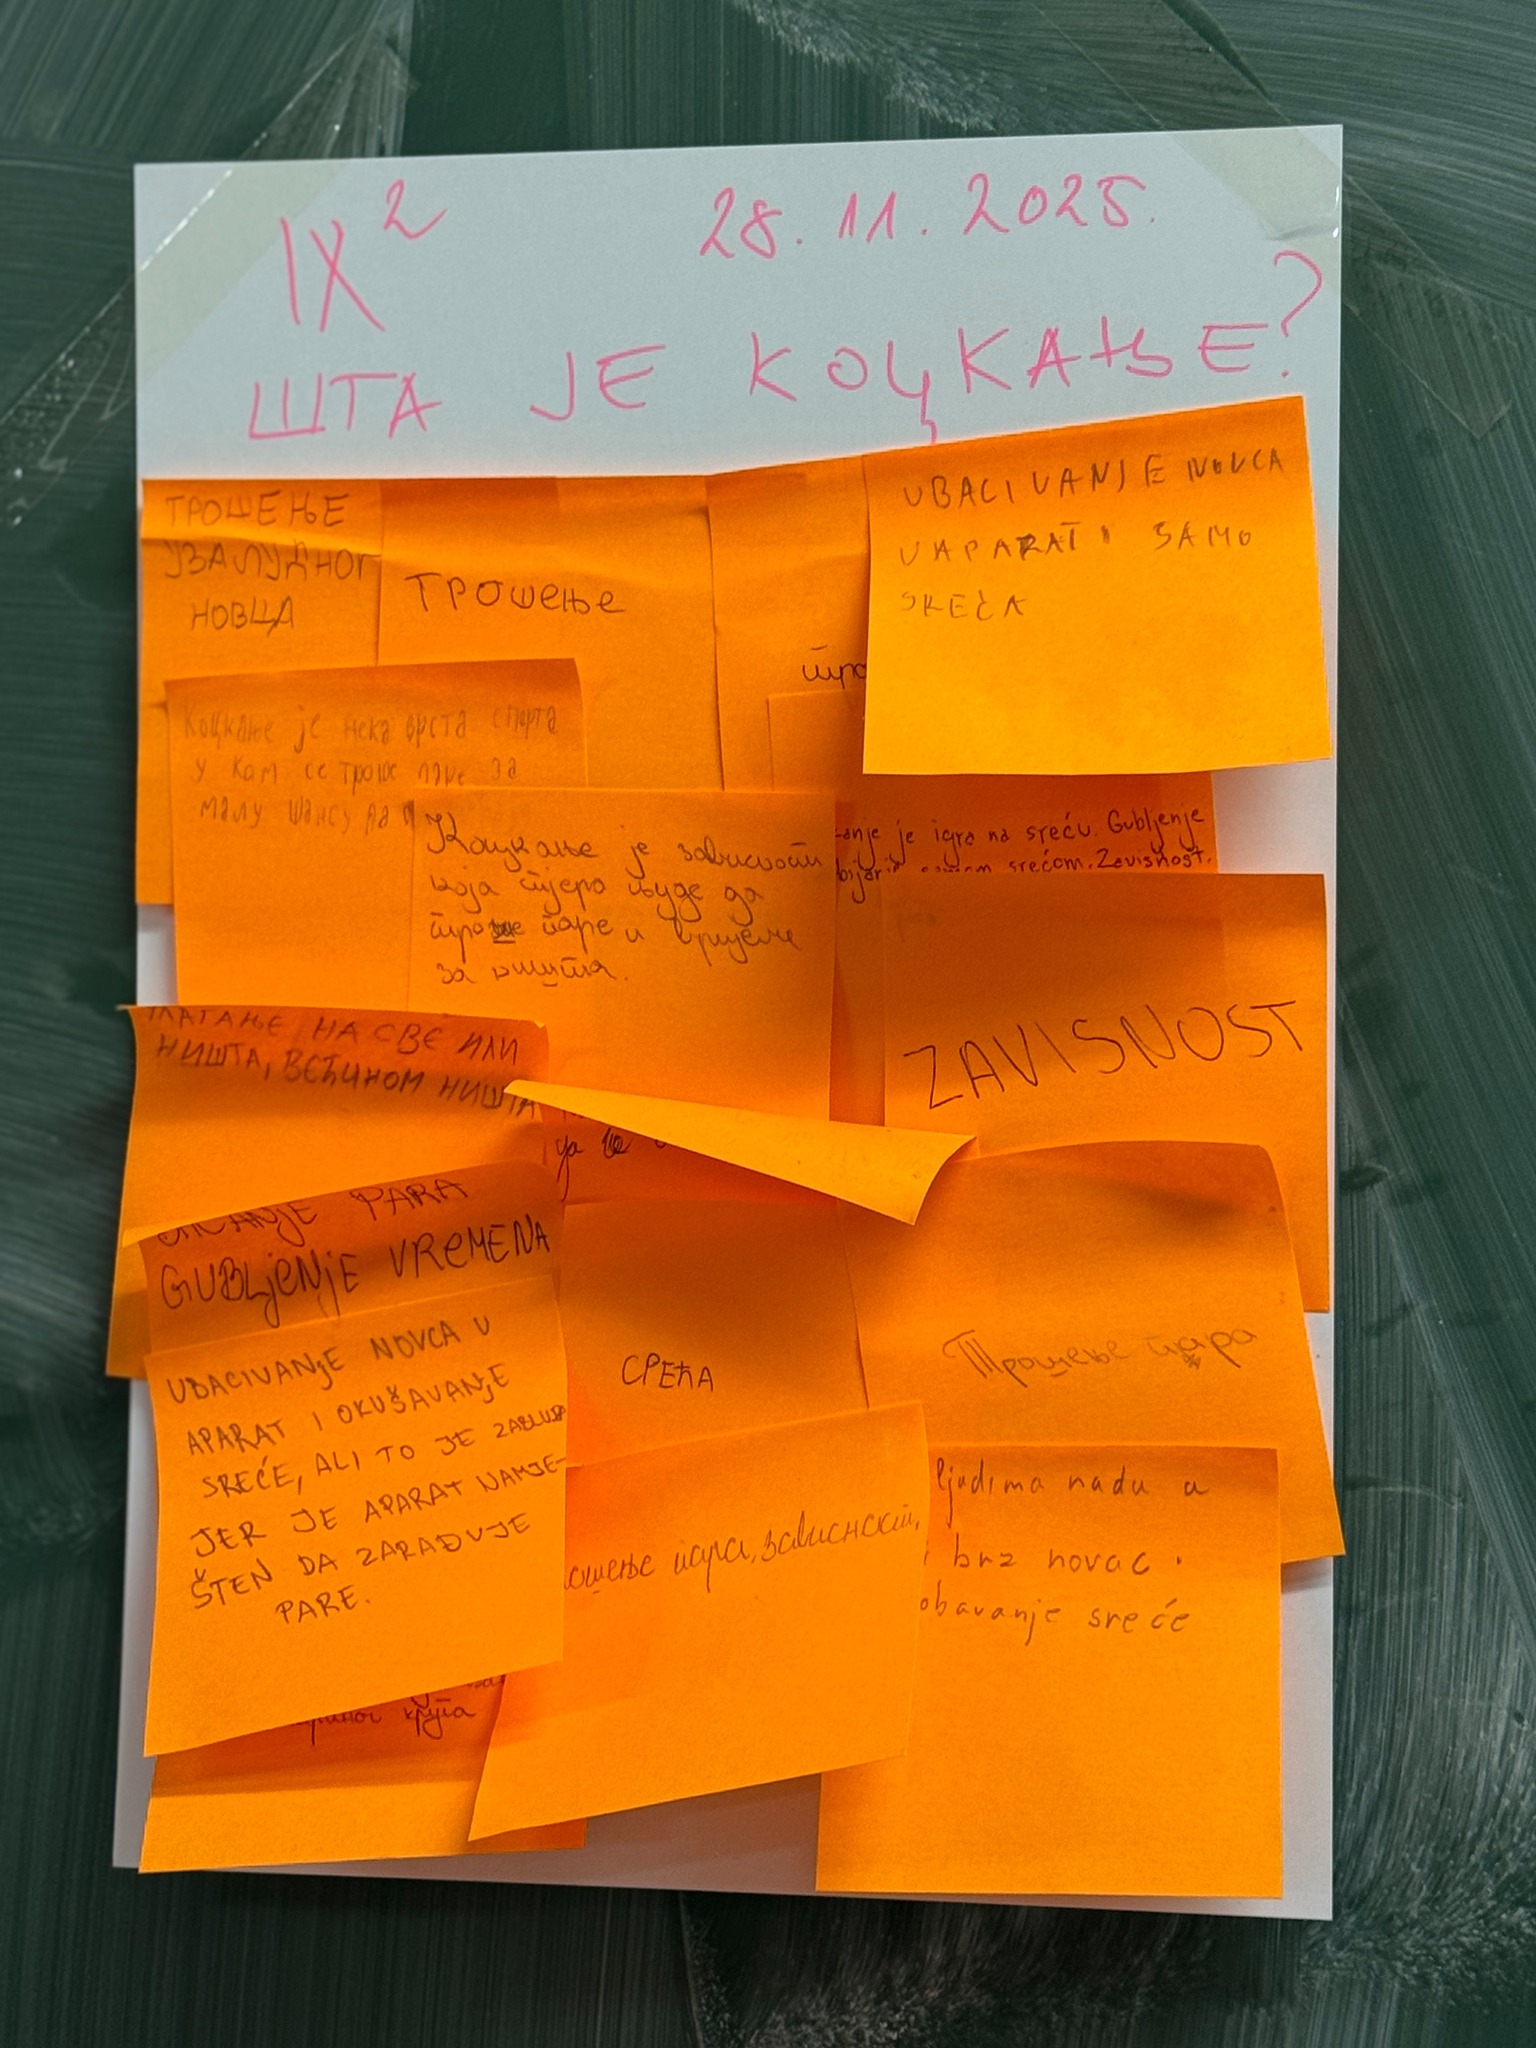 IX² 28.11.2025.
ШТА ЈЕ КОЦКАЊЕ?
ТРОШЕЊЕ
УЗАЛУДНОГ
НОВЦА
трошење
UBACIVANJE NOVCA
U APARAT I SAMO
SREĆA
Коцкање је нека врста спорта
у ком се троше паре за
малу шансу да
Коцкање је зависност
која тјера људе да
троше паре и вријеме
за ништа.
je igra na sreću. Gubljenje
srećom. Zavisnost.
ZAVISNOST
НА СВЕ ИЛИ
НИШТА, ВЕЋИНОМ НИШТА
да се
PARA
GUBLJENJE VREMENA
UBACIVANJE NOVCA U
APARAT I OKUŠAVANJE
SREĆE, ALI TO JE
JER JE APARAT NAMJE-
ŠTEN DA ZARAĐUJE
PARE.
СРЕЋА
Трошење пара
пара, зависност,
ljudima nadu u
brz novac.
sreće
круга